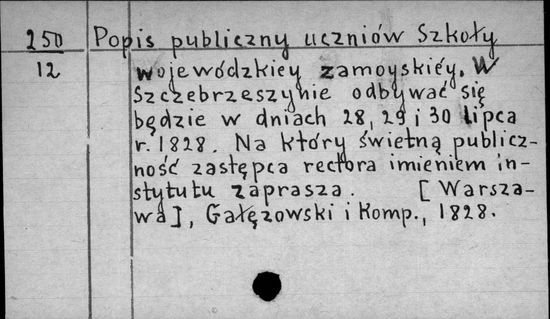 250 Popis publiczny uczniów Szkoły
12 wojewódzkiey zamoyskiéy. W
Szczebrzeszynie odbywać się
będzie w dniach 28, 29 i 30 lipca
r. 1828. Na który świetną publicz-
ność zastępca rectora imieniem in-
stytutu zaprasza. [Warsza-
wa], Gałęzowski i Komp., 1828.